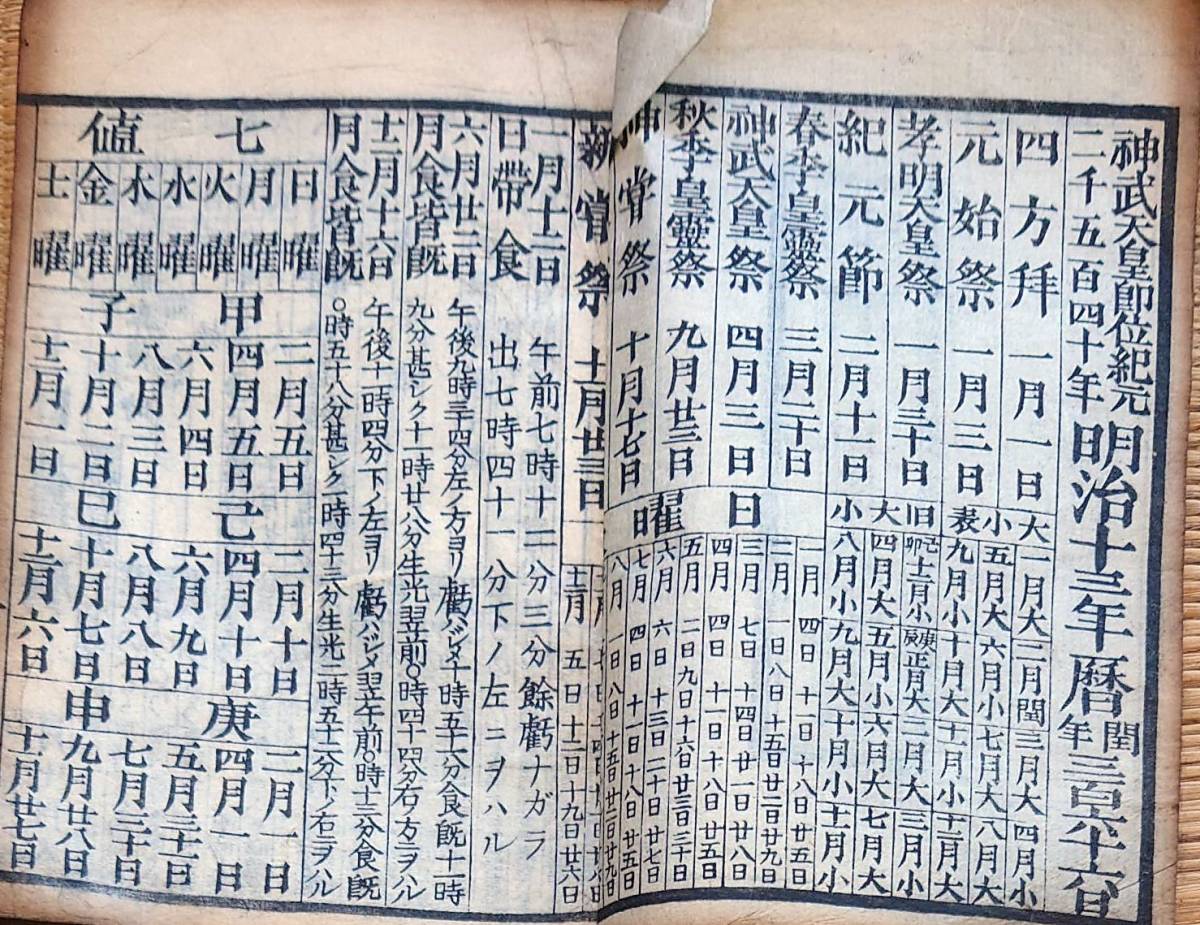 神武天皇即位紀元
二千五百四十年
明治十三年暦
閏年
三百六十六日
四方拜 一月一日
元始祭 一月三日
孝明天皇祭 一月三十日
紀元節 二月十一日
春季皇靈祭 三月二十日
神武天皇祭 四月三日
秋季皇靈祭 九月廿三日
神嘗祭 十月十七日
新嘗祭 十一月廿三日
大 一月大二月閏三月大四月小
小 五月大六月小七月大八月大
表 九月小十月大十一月小十二月大
旧 己卯十一月小庚辰正月大二月大三月小
大 四月大五月小六月大七月大
小 八月小九月大十月小十一月小
日曜日
一月 四日 十一日 十八日 廿五日
二月 一日 八日 十五日 廿二日 廿九日
三月 七日 十四日 廿一日 廿八日
四月 四日 十一日 十八日 廿五日
五月 二日 九日 十六日 廿三日 三十日
六月 六日 十三日 二十日 廿七日
七月 四日 十一日 十八日 廿五日
八月 一日 八日 十五日 廿二日 廿九日
十二月 五日 十二日 十九日 廿六日
一月十二日
日帶食
午前七時十二分三分餘虧ナガラ
出七時四十一分下ノ左ニヲハル
六月廿二日
月食皆既
午後九時三十四分左ノ方ヨリ虧ハジメ
九分甚シク十一時廿八分生光翌前〇時四十四分右ノ方ニヲハル
十二月十六日
月食皆既
午後十一時四分下ノ左ヨリ虧ハジメ翌午前〇時十三分食既
〇時五十八分甚シク一時四十三分生光二時五十二分下ノ右ニヲハル
七値
日曜
月曜
火曜
水曜
木曜
金曜
土曜
甲子
二月五日
四月五日
六月四日
八月三日
十月二日
十二月一日
己巳
二月十日
四月十日
六月九日
八月八日
十月七日
十二月六日
庚申
二月一日
四月一日
五月三十一日
七月三十日
九月廿八日
十一月廿七日